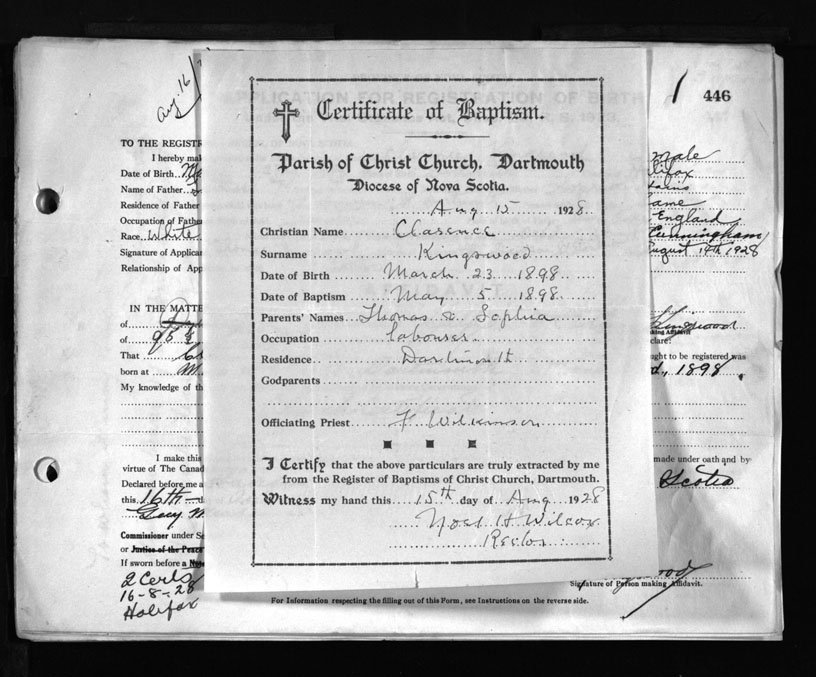 Aug. 16/
446
Certificate of Baptism.
Parish of Christ Church, Dartmouth
Diocese of Nova Scotia.
Aug 15 1928
Christian Name Clarence
Surname Kingswood
Date of Birth March 23 1898
Date of Baptism May 5 1898
Parents' Names Thomas & Sophia
Occupation labourer
Residence Dartmouth
Godparents
Officiating Priest F Wilkinson
I Certify that the above particulars are truly extracted by me
from the Register of Baptisms of Christ Church, Dartmouth.
Witness my hand this 15th day of Aug 1928
Noel H Wilcox
Rector
TO THE REGISTR
I hereby mak
Date of Birth
Name of Father
Residence of Father
Occupation of Fathe
Race White
Signature of Applican
Relationship of App
IN THE MATTE
of
of 95½
That
born at
My knowledge of th
I make this
virtue of The Canad
Declared before me a
this 16th d
Guy M
Commissioner under Se
or Justice of the Peace
If sworn before a
2 Certs
16-8-28
Halifax
male
lifax
same
England
Cunningham
August 14th 1928
Kingswood
making Affidavit
clare:
ught to be registered was
d, 1898
made under oath and by
Scotia
Signature of Person making Affidavit.
For Information respecting the filling out of this Form, see Instructions on the reverse side.